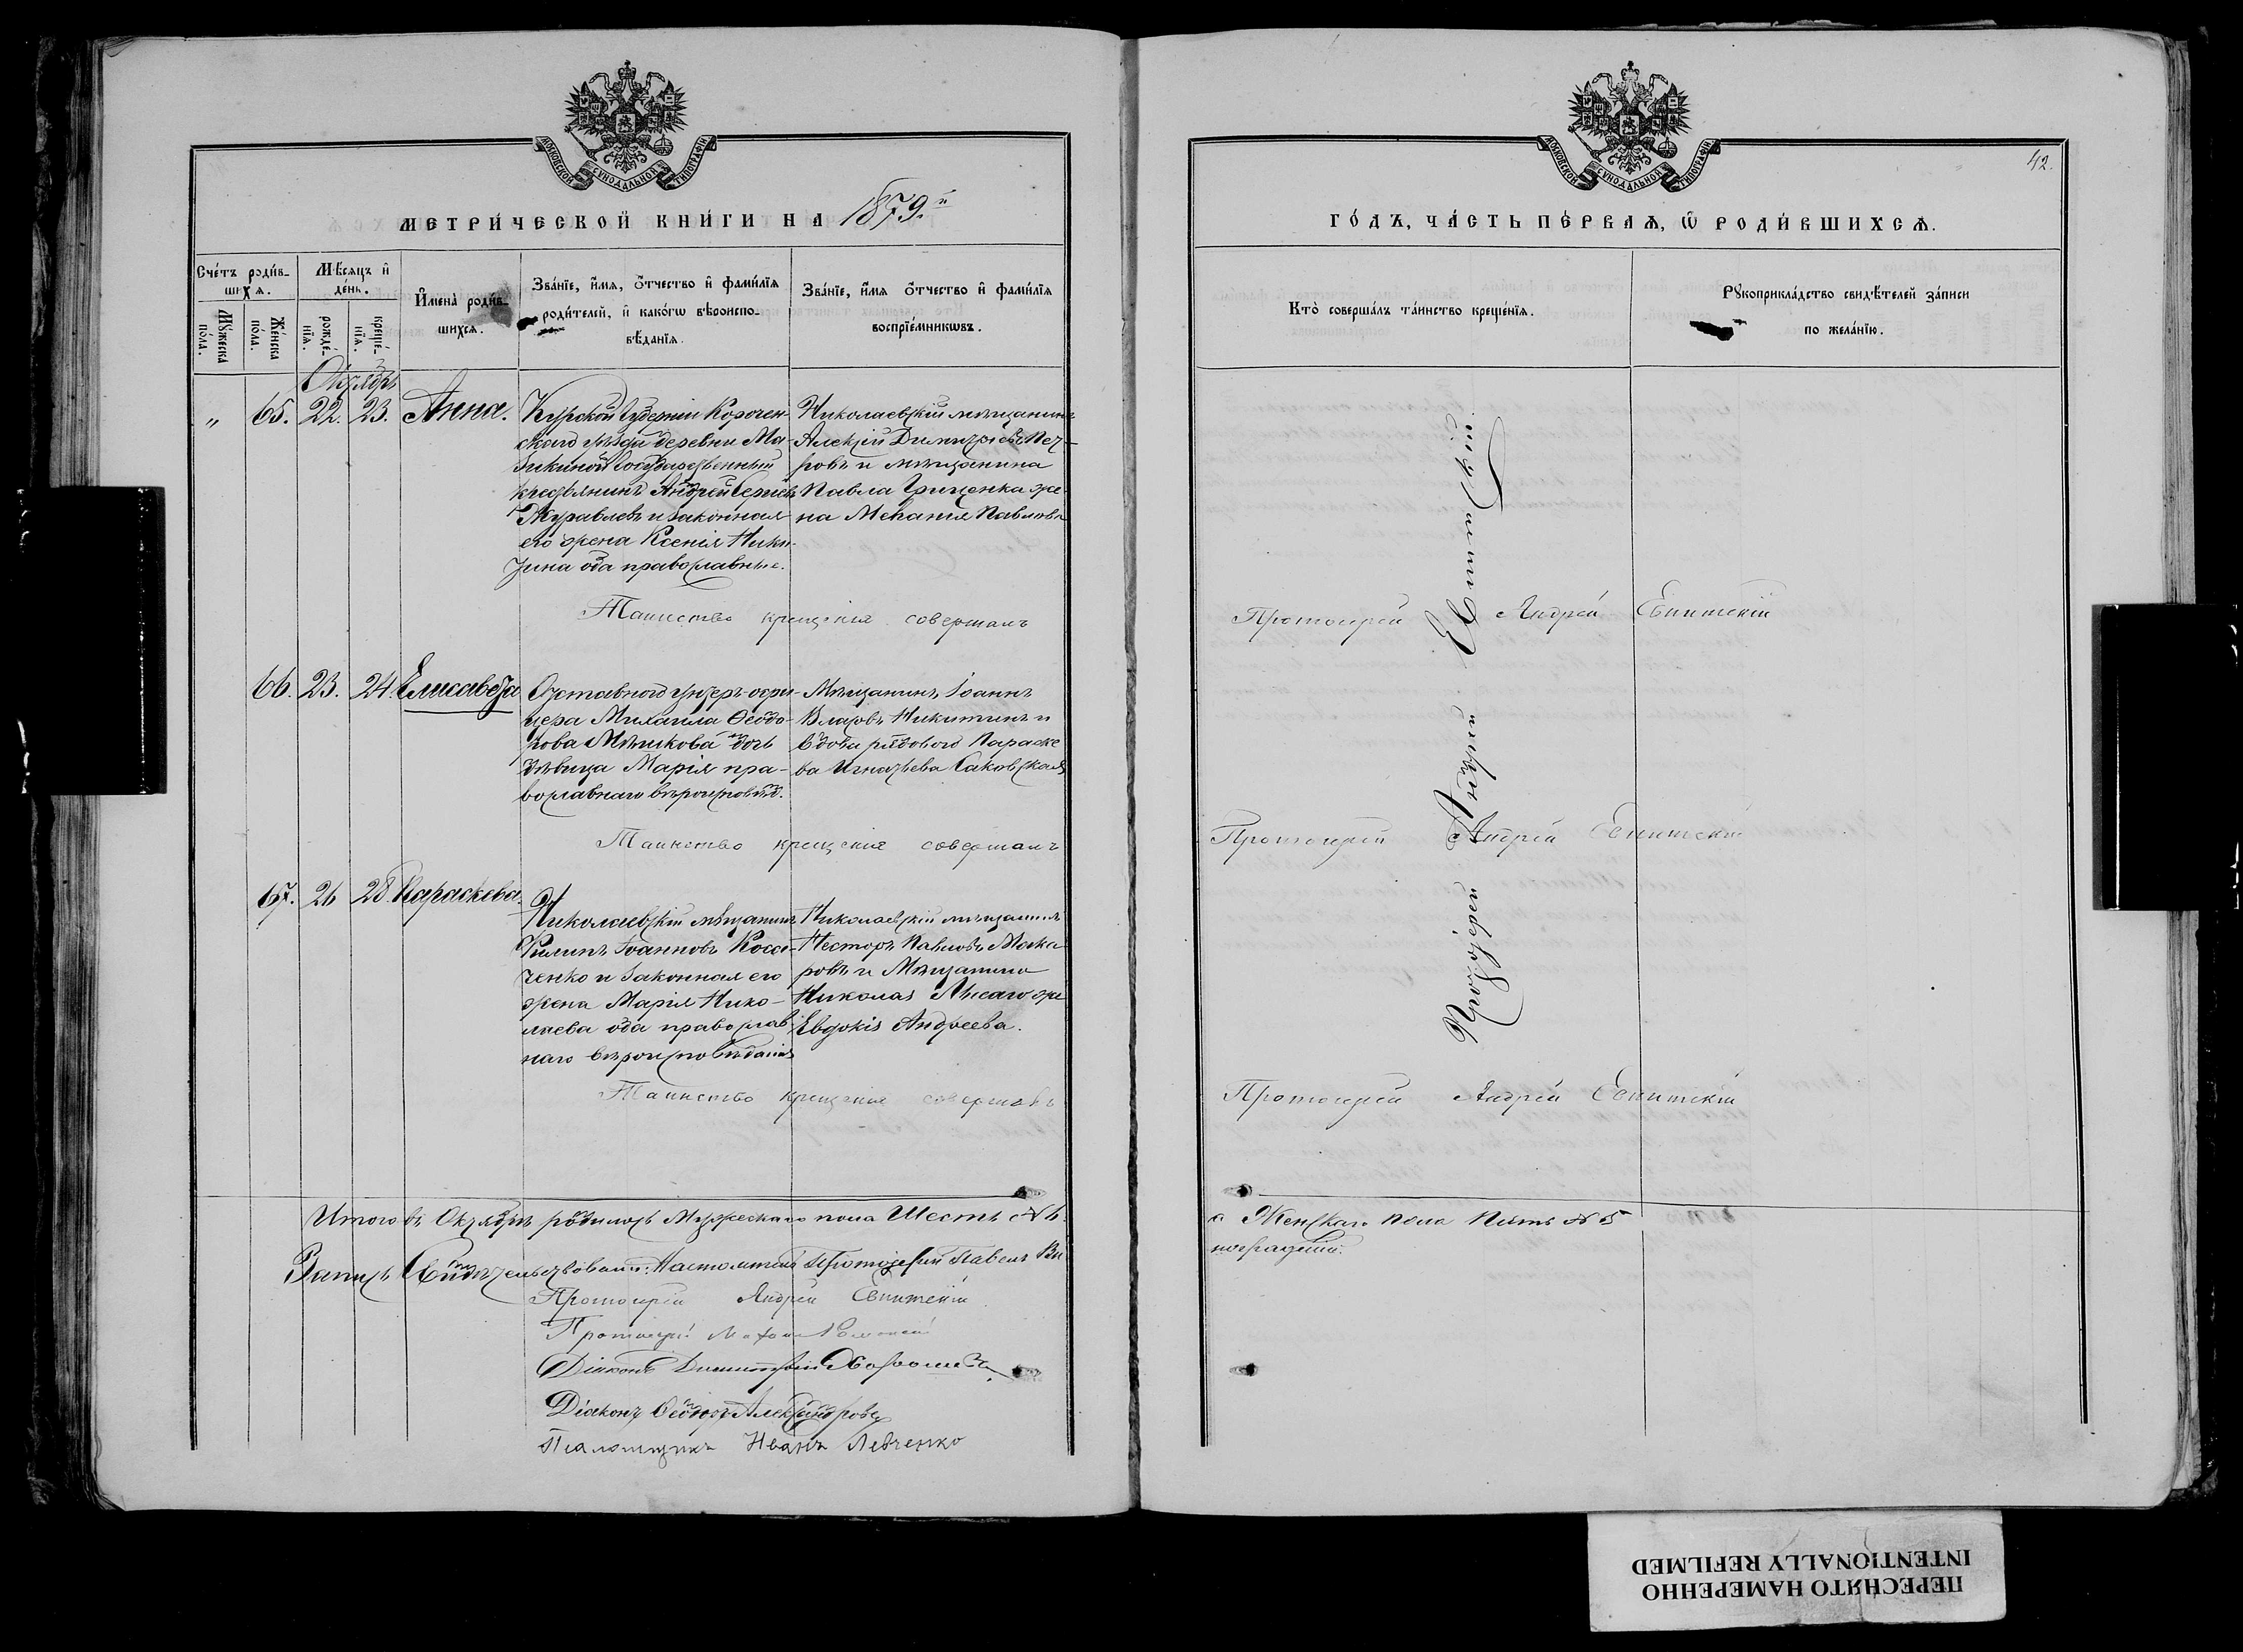 МОСКОВСКОЙ СУНОДАЛЬНОЙ ТИПОГРАФІИ
МЕТРИ́ЧЕСКОЙ КНИ́ГИ НА 1879.й
Сче́тъ роди́в-
шихся.
Мѣ́сяцъ и
де́нь.
Му́жеска
по́ла.
Же́нска
по́ла.
рожде́-
нїя.
креще́-
нїя.
И҆мена̀ роди́в-
шихся.
Зва́нїе, и҆́мя, ѻ҆́тчество и҆ фами́лїя
роди́телей, и҆ како́гѡ вѣроиспо-
вѣ́данїя.
Зва́нїе, и҆́мя ѻ҆́тчество и҆ фами́лїя
воспрїе́мникѡвъ.
Октябрь
" 65. 22. 23. Анна.
Курской Губерніи Корочен-
скаго уѣзда деревни Ма-
зикиной Государственный
крестьянинъ Андрей Сергіевъ
Журавлевъ и законная
его жена Ксенія Ники-
тина оба православные.
Николаевскій мѣщанинъ
Алексій Димитріевъ Пет-
ровъ и мѣщанина
Павла Гриценка же-
на Меланія Павлова
Таинство крещенія совершалъ
66. 23. 24. Елисавета
Отставного унтеръ-офи-
цера Михаила Ѳеодо-
рова Мѣшкова дочь
дѣвица Марія пра-
вославнаго вѣроисповѣд.
Мѣщанинъ Іоаннъ
Власовъ Никитинъ и
вдова рядового Параске
ва Игнатьева Саковская
Таинство крещенія совершалъ
67. 26 28 Параскева.
Николаевскій мѣщанинъ
Филипъ Іоанновъ Коса-
ченко и законная его
жена Марія Нико-
лаева оба православ-
наго вѣроисповѣданія
Николаевскій мѣщанинъ
Несторъ Павловъ Мака
ровъ и Мѣщанина
Николая Лисаго же
Евдокія Андреева.
Таинство крещенія совершалъ
Итого въ Октябрѣ родилось Мужескаго пола Шесть № 6.
Запись Свидѣтельствовали: Настоятель Протоіерей Павелъ
Протоіерей Андрей Евнитскій
Протоіерей
Діаконъ Димитрій
Діаконъ Ѳеодоръ Александровъ
Псаломщикъ Иванъ Левченко
МОСКОВСКОЙ СУНОДАЛЬНОЙ ТИПОГРАФІИ
42.
ГО́ДЪ, ЧА́СТЬ ПЕ́РВАЯ, Ѡ҆ РОДИ́ВШИХСЯ.
Кто̀ соверша́лъ та́инство креще́нїя.
Рꙋкоприкла́дство свидѣ́телей за́писи
по жела́нїю.
Протоіерей Андрей Евнитскій
Протоіерей Андрей Евнитскій
Протоіерей Андрей Евнитскій
Протоіерей Андрей Евнитскій
а Женскаго пола Пять № 5
ПЕРЕСНЯТО НАМЕРЕННО
INTENTIONALLY REFILMED